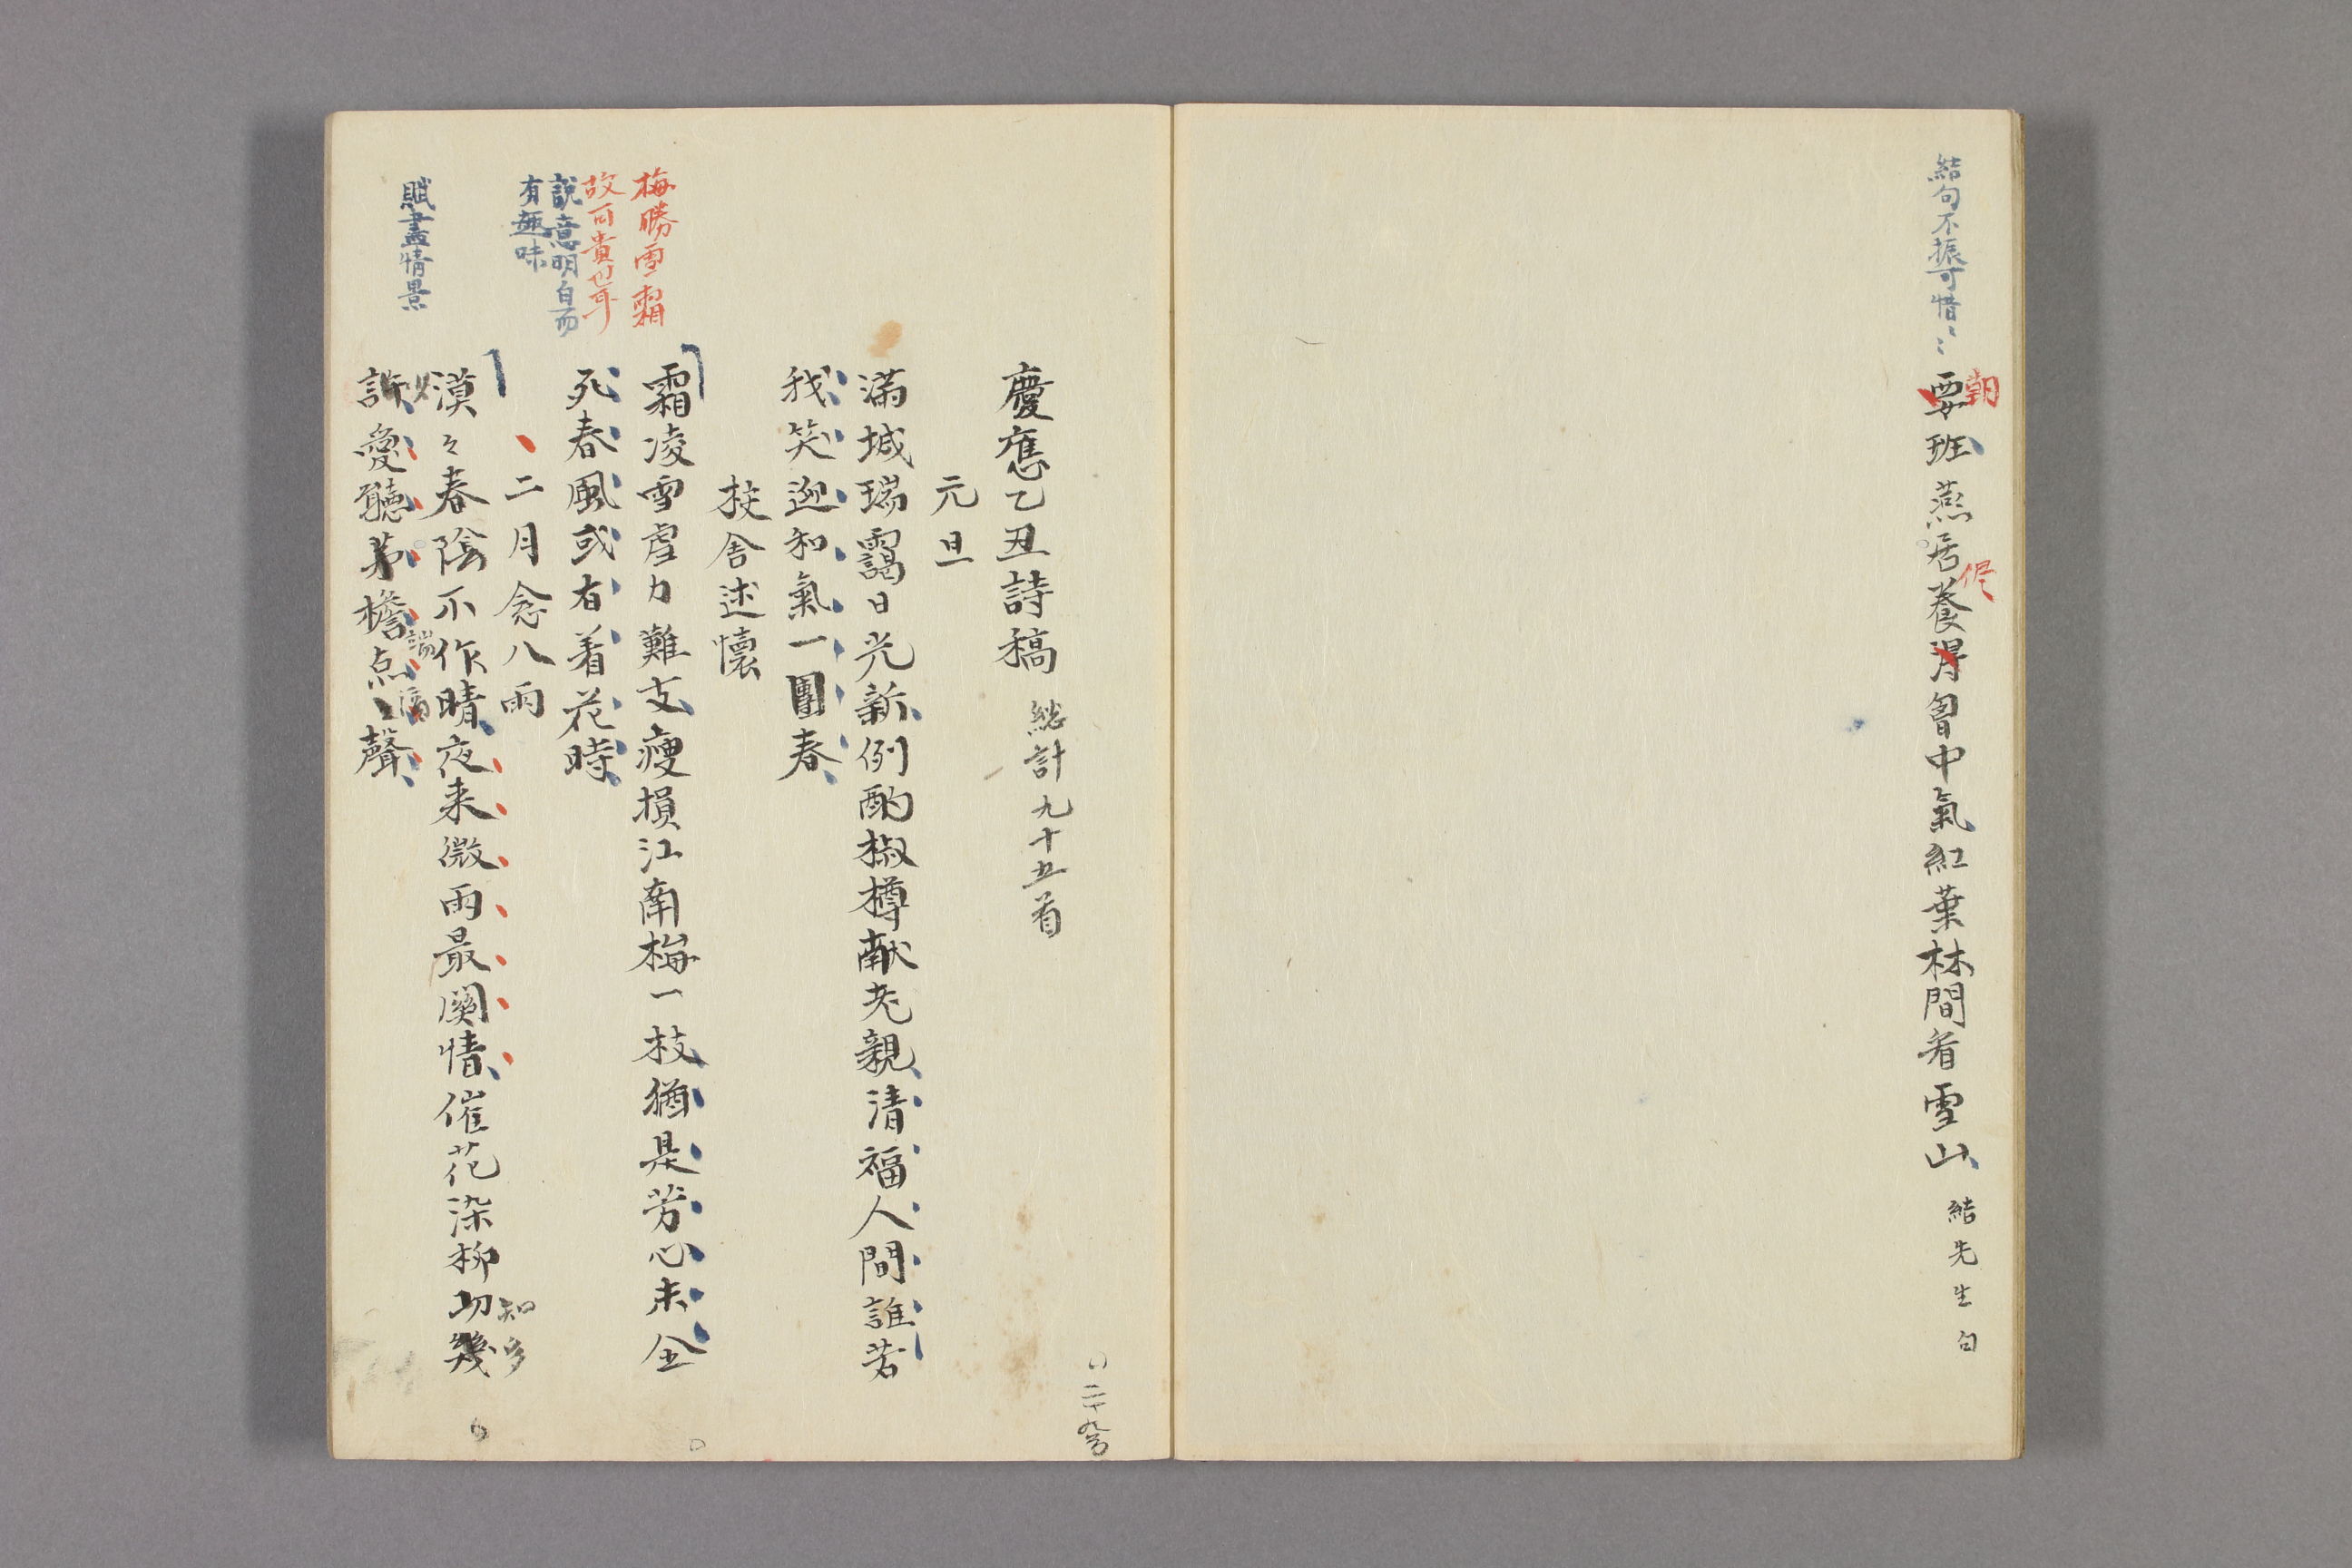 結句不振可惜〻
朝
要班燕居養得胷中氣紅葉林間看雪山
結先生句
慶應乙丑詩稿 総計九十五首
元旦
滿城瑞靄日光新例酌椒樽献老親清福人間誰若
我笑迎和氣一團春
梅勝雪霜
故可貴也耳
說意明白而
有趣味
校舍述懷
霜凌雪虐力難支瘦損江南梅一枝猶是芳心未全
死春風或有着花時
賦盡情景
二月念八雨
漠々春陰不作晴夜来微雨最関情催花染柳功幾
知多
許愛聽茅檐点〻聲
少
端
滴
二十九号